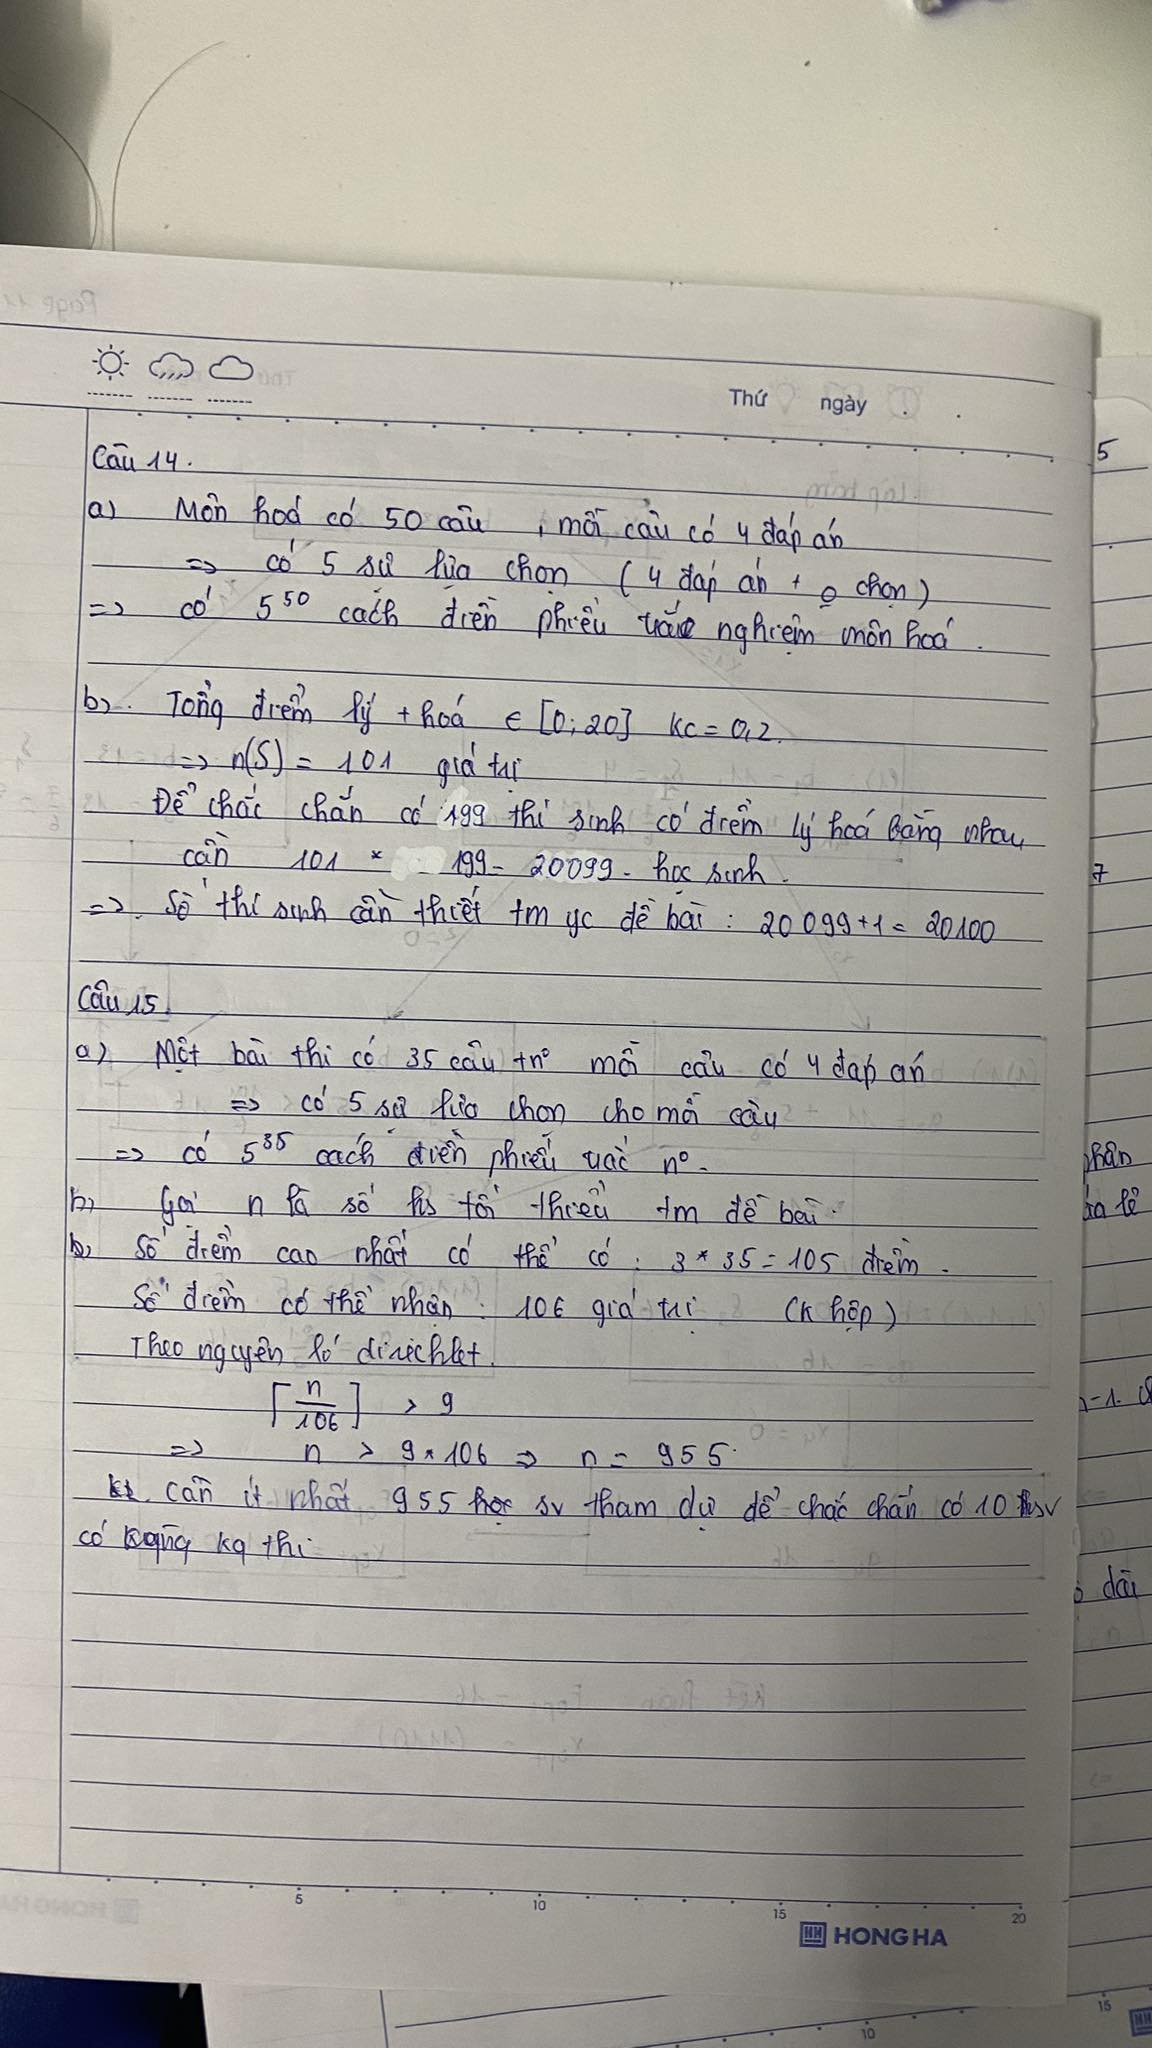 Thứ ngày
Câu 14.
a) Môn hoá có 50 câu, mỗi câu có 4 đáp án
=> có 5 sự lựa chọn (4 đáp án + 0 chọn)
=> có 5^50 cách điền phiếu trắc nghiệm môn hoá.
b). Tổng điểm lý + hoá ∈ [0; 20] kc = 0,2.
=> n(S) = 101 giá trị
Để chắc chắn có 199 thí sinh có điểm lý hoá bằng nhau
cần 101 * 199 = 20099. học sinh.
=>. Số thí sinh cần thiết tm yc đề bài: 20099+1 = 20100
Câu 15.
a) Một bài thi có 35 câu tn° mỗi câu có 4 đáp án
=> có 5 sự lựa chọn cho mỗi câu
=> có 5^35 cách điền phiếu trắc n°.
b, Gọi n là số hs tối thiểu tm đề bài.
b, Số điểm cao nhất có thể có: 3 * 35 = 105 điểm.
Số điểm có thể nhận: 106 giá trị (k hộp)
Theo nguyên lí dirichlet.
⌈n/106⌉ > 9
=> n > 9 * 106 => n = 955.
cần ít nhất 955 sv tham dự để chắc chắn có 10 sv
có cùng kq thi
5 10 15 20
HONG HA
5
7
phân
n-1.
dài
10 15